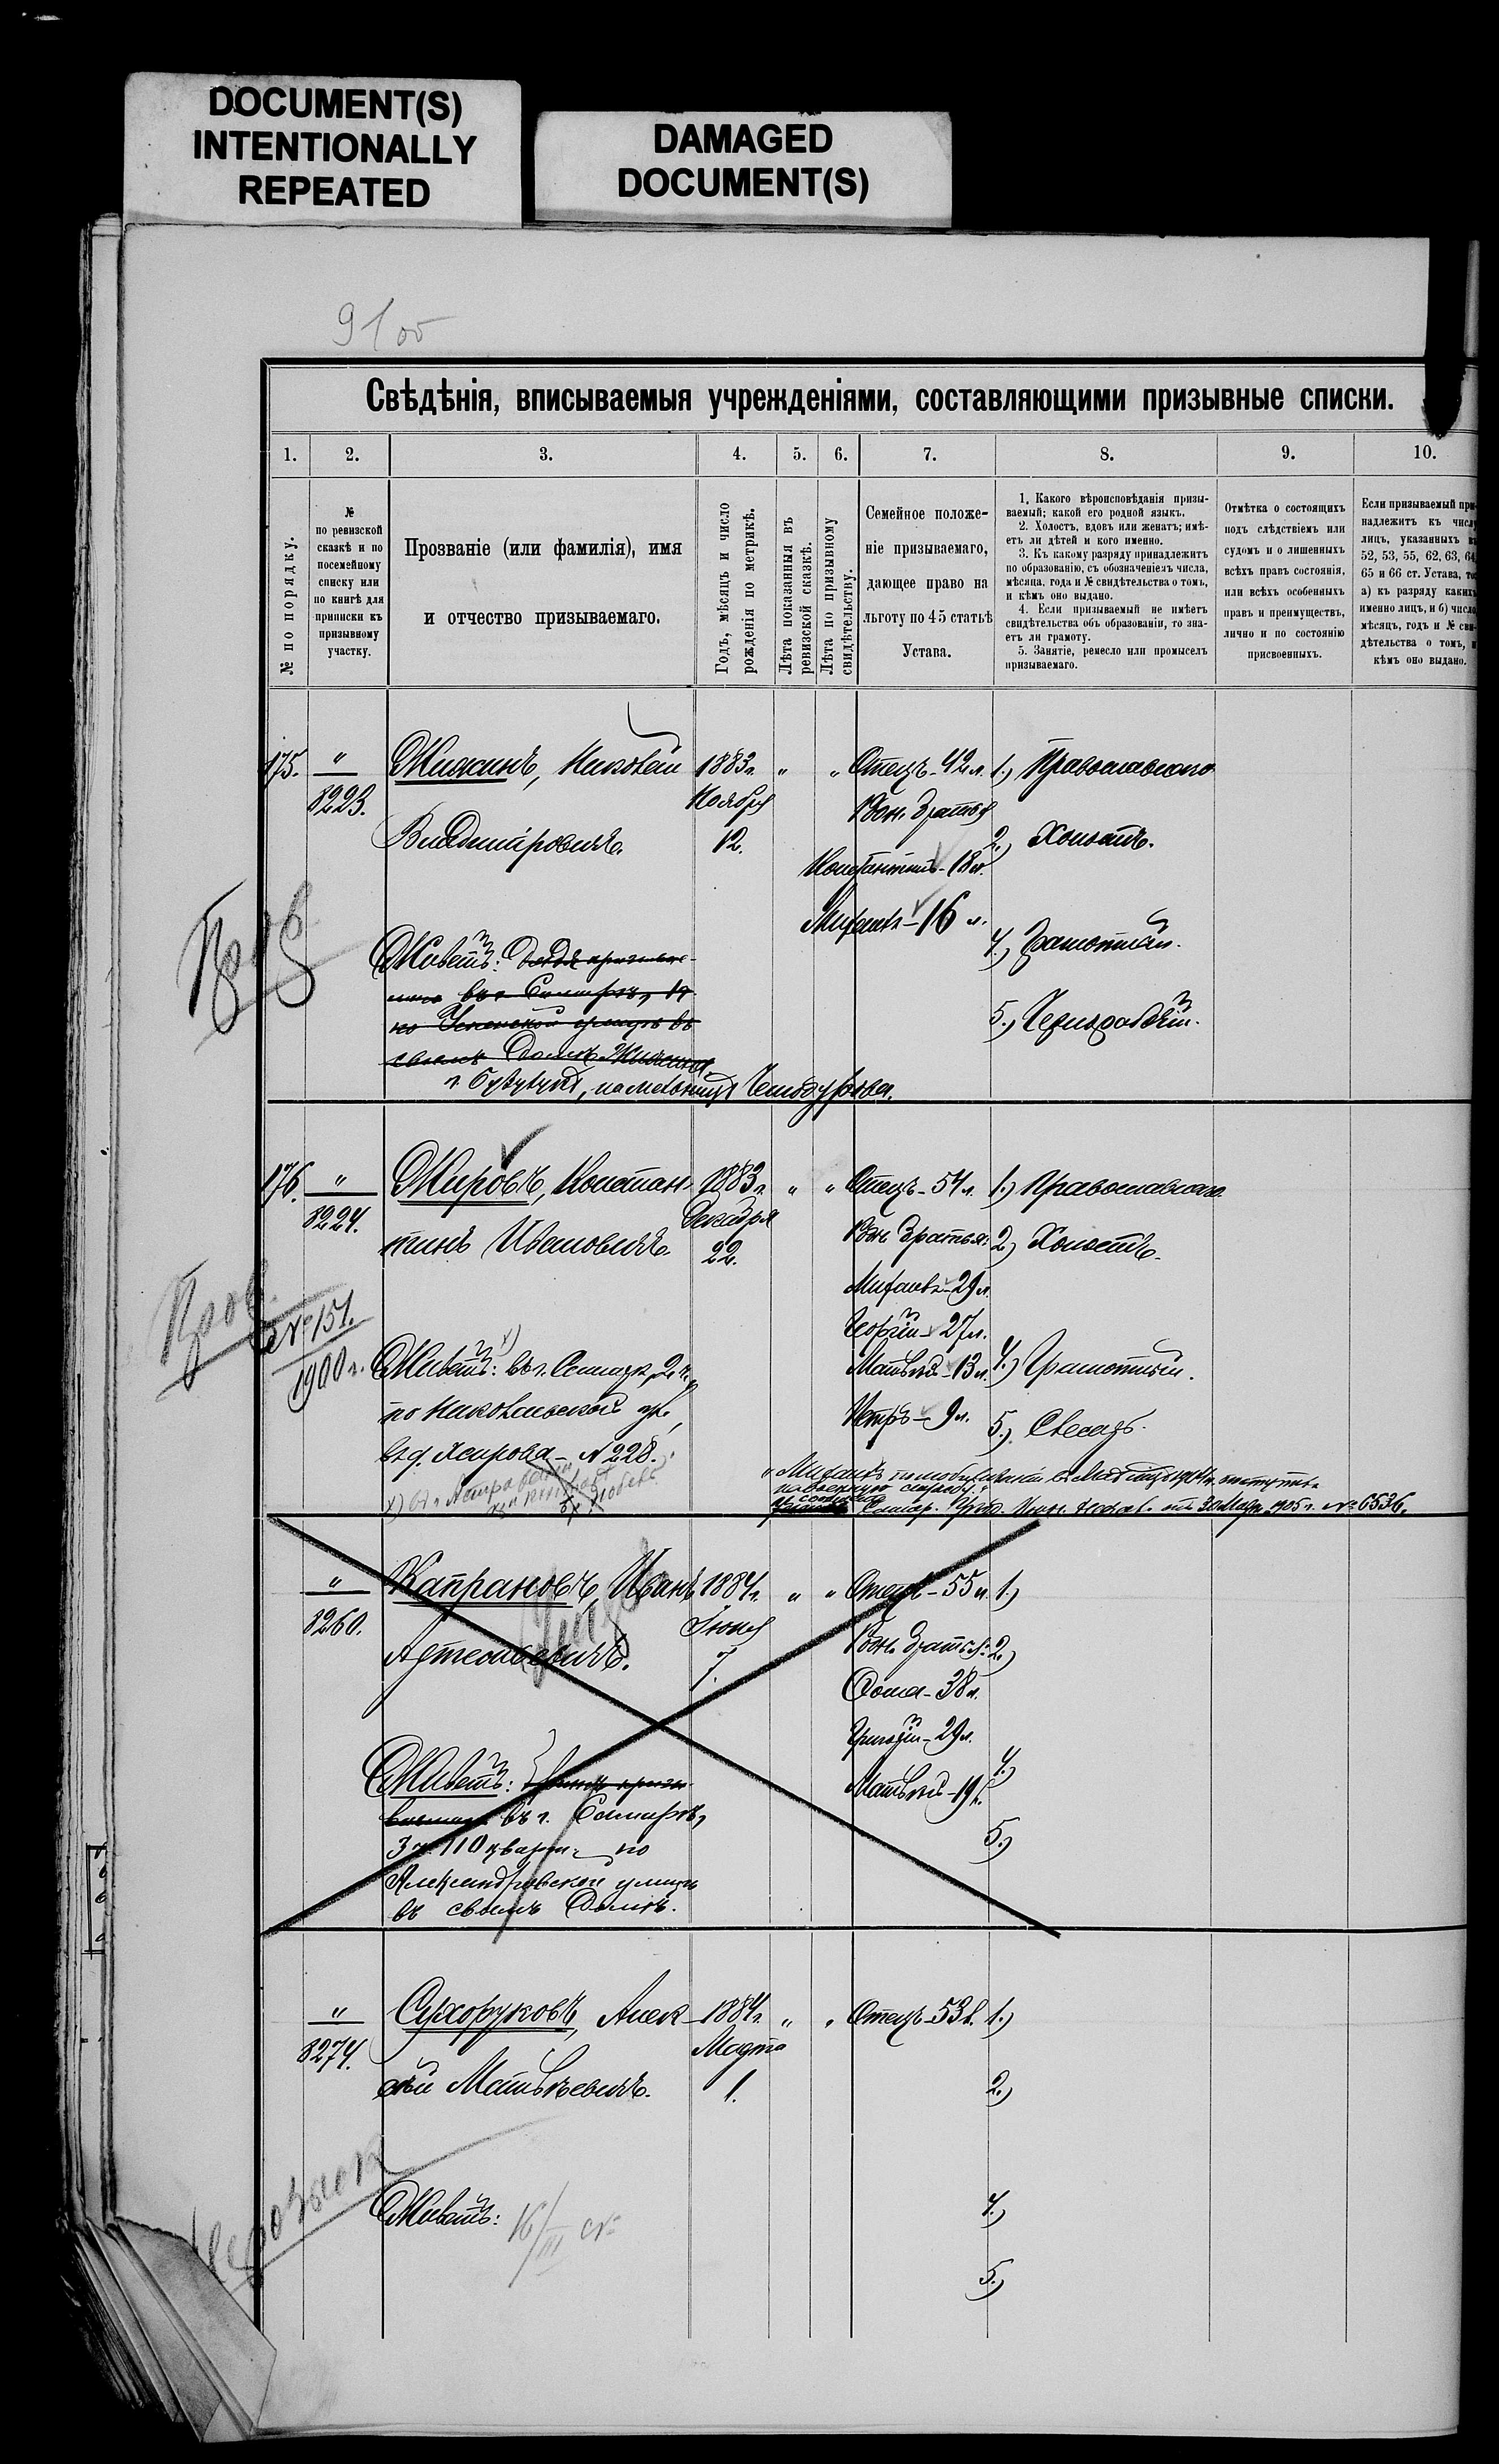 DOCUMENT(S)
INTENTIONALLY
REPEATED
DAMAGED
DOCUMENT(S)
91 об
Свѣдѣнія, вписываемыя учрежденіями, составляющими призывные списки.
1.
2.
3.
4.
5.
6.
7.
8.
9.
10.
№ по порядку.
№
по ревизской
сказкѣ и по
посемейному
списку или
по книгѣ для
приписки къ
призывному
участку.
Прозваніе (или фамилія), имя
и отчество призываемаго.
Годъ, мѣсяцъ и число
рожденія по метрикѣ.
Лѣта показанныя въ
ревизской сказкѣ.
Лѣта по призывному
свидѣтельству.
Семейное положе-
ніе призываемаго,
дающее право на
льготу по 45 статьѣ
Устава.
1. Какого вѣроисповѣданія призы-
ваемый; какой его родной языкъ.
2. Холостъ, вдовъ или женатъ; имѣ-
етъ ли дѣтей и кого именно.
3. Къ какому разряду принадлежитъ
по образованію, съ обозначеніемъ числа,
мѣсяца, года и № свидѣтельства о томъ,
и кѣмъ оно выдано.
4. Если призываемый не имѣетъ
свидѣтельства объ образованіи, то зна-
етъ ли грамоту.
5. Занятіе, ремесло или промыселъ
призываемаго.
Отмѣтка о состоящихъ
подъ слѣдствіемъ или
судомъ и о лишенныхъ
всѣхъ правъ состоянія,
или всѣхъ особенныхъ
правъ и преимуществъ,
лично и по состоянію
присвоенныхъ.
Если призываемый при-
надлежитъ къ числу
лицъ, указанныхъ въ
52, 53, 55, 62, 63, 64,
65 и 66 ст. Устава, то:
а) къ разряду какихъ
именно лицъ, и б) число,
мѣсяцъ, годъ и № сви-
дѣтельства о томъ, и
кѣмъ оно выдано.
175.
"
8223.
Жилинъ, Николай
Владиміровичъ.
1883 г.
Ноября
12.
"
"
Отецъ - 42 л.
Родн. братья
Константинъ - 18 л.
Михаилъ - 16 л.
1.) Православнаго
2.) Холостъ.
4.) Грамотный.
5.) Чернорабочій.
Живетъ:
въ г. Самарѣ,
по Успенской улицѣ въ
своемъ домѣ
г. Бузулукъ, на мельницѣ
176.
"
8224.
Жировъ, Констан-
тинъ Ивановичъ.
1883 г.
Декабря
22.
"
"
Отецъ - 54 л.
Родн. братья:
Михаилъ - 29 л.
Георгій - 27 л.
Матвѣй - 13 л.
Петръ - 9 л.
1.) Православнаго.
2.) Холостъ.
4.) Грамотный.
5.) Слесарь.
№ 151.
1900 г.
Живетъ: въ г. Самарѣ, 2 ч.,
по Никольской ул.,
въ д. Жирова - № 228.
" Михаилъ по мобилизаціи
на военную службу."
Самар. отъ 30 Марта 1905 г. № 6536.
"
8260.
Капрановъ, Иванъ
Артемьевичъ.
1884 г.
Іюня
7.
"
"
Отецъ - 55 л.
Родн. братья:
Фома - 38 л.
Григорій - 29 л.
Матвѣй - 19 л.
1.)
2.)
4.)
5.)
Живетъ:
въ г. Самарѣ,
3 ч. 110 кварт. по
Александровской улицѣ
въ своемъ домѣ.
"
8274.
Сухоруковъ, Алек-
сѣй Матвѣевичъ.
1884 г.
Марта
1.
"
"
Отецъ - 53 л.
1.)
2.)
4.)
5.)
Живетъ: 16/III